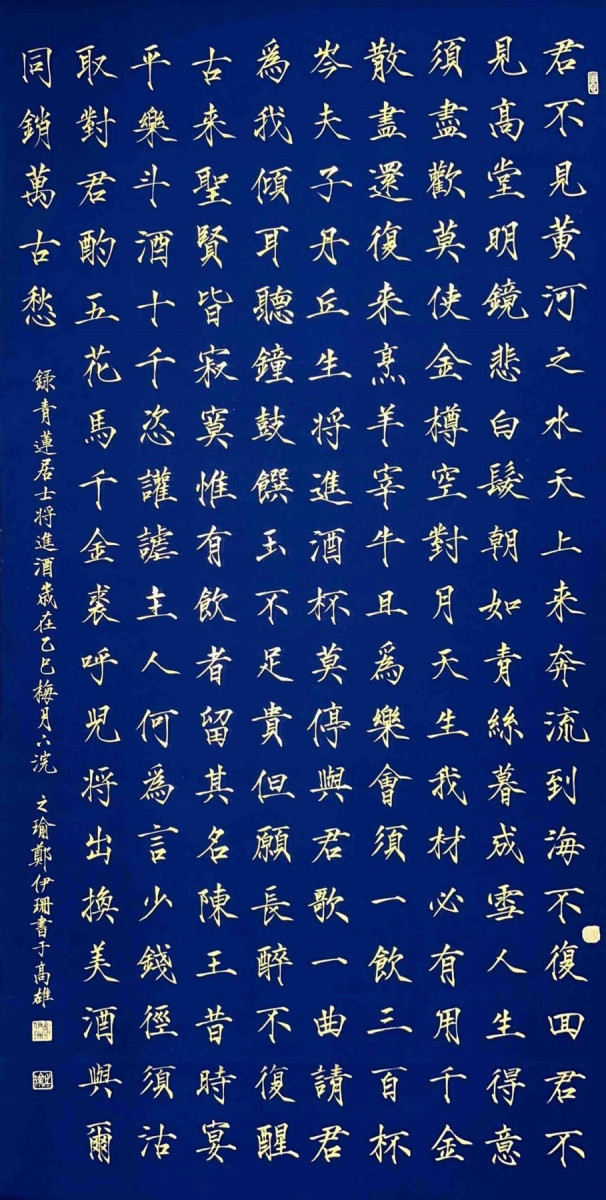 君不見黄河之水天上来奔流到海不復回君不
見髙堂明鏡悲白髮朝如青絲暮成雪人生得意
須盡歡莫使金樽空對月天生我材必有用千金
散盡還復来烹羊宰牛且為樂會須一飲三百杯
岑夫子丹丘生将進酒杯莫停與君歌一曲請君
為我傾耳聽鐘鼓饌玉不足貴但願長醉不復醒
古来聖賢皆寂寞惟有飲者留其名陳王昔時宴
平樂斗酒十千恣讙謔主人何為言少錢徑須沽
取對君酌五花馬千金裘呼児将出換美酒與爾
同銷萬古愁
録青蓮居士将進酒歲在乙巳梅月下浣 之瑜鄭伊珊書于髙雄